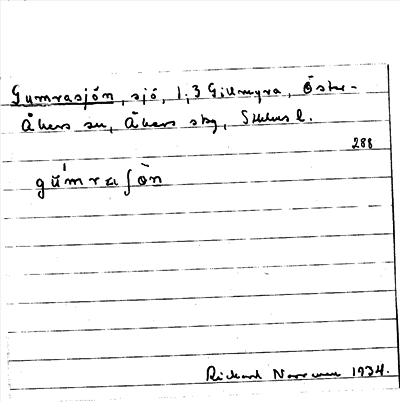 Gumrasjön, sjö, 1,3 Gillmyra, Öster-
Åkers sn, Åkers skg, Sthlms l.
288
gŭ́mraʃòn
Rickard 1934.